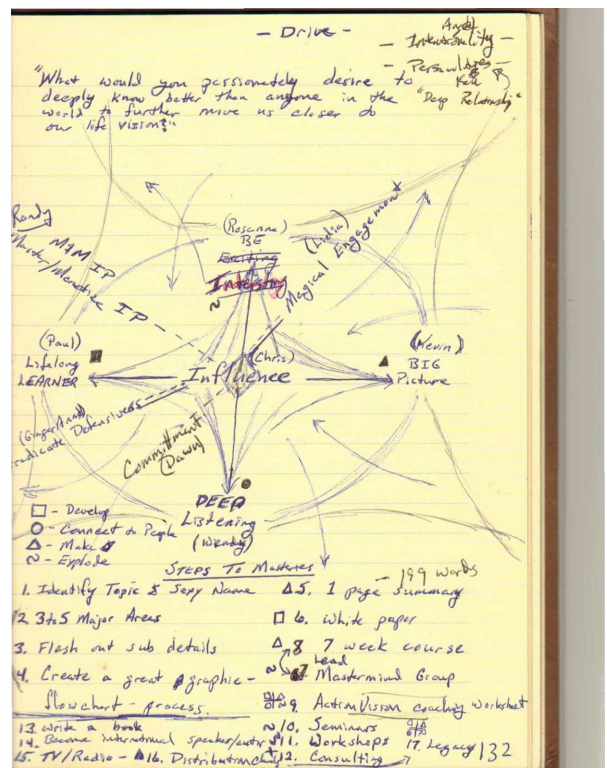 - Drive -
- Intentionality -
- Personalities -
"Deep Relationship"
"What would you passionately desire to
deeply know better than anyone in the
world to further move us closer do
our life vision?"
Randy
M/M IP
Master/Monetize IP
(Rosanna)
BE
Exciting
Interesting
~
(Lidia)
Magical Engagement
(Paul)
Lifelong
LEARNER
(Chris)
Influence
(Kevin)
BIG
Picture
(GingerAnna)
radicate Defensiveness
Commitment
(Dawn)
DEEP
Listening
(Wendy)
□ - Develop
○ - Connect to People
△ - Make $
~ - Explode
STEPS To Masteries
1. Identify Topic & Sexy Name
2. 3 to 5 Major Areas
3. Flesh out sub details
4. Create a great graphic -
flowchart - process.
- 199 words
△ 5. 1 page summary
□ 6. White paper
△ 8 7 week course
~ 7 Lead
Mastermind Group
9. ActionVision coaching worksheet
~ 10. Seminars
11. Workshops
12. Consulting
13. write a book
14. Become international speaker/author
15. TV/Radio - △16. Distribution
17. Legacy
132